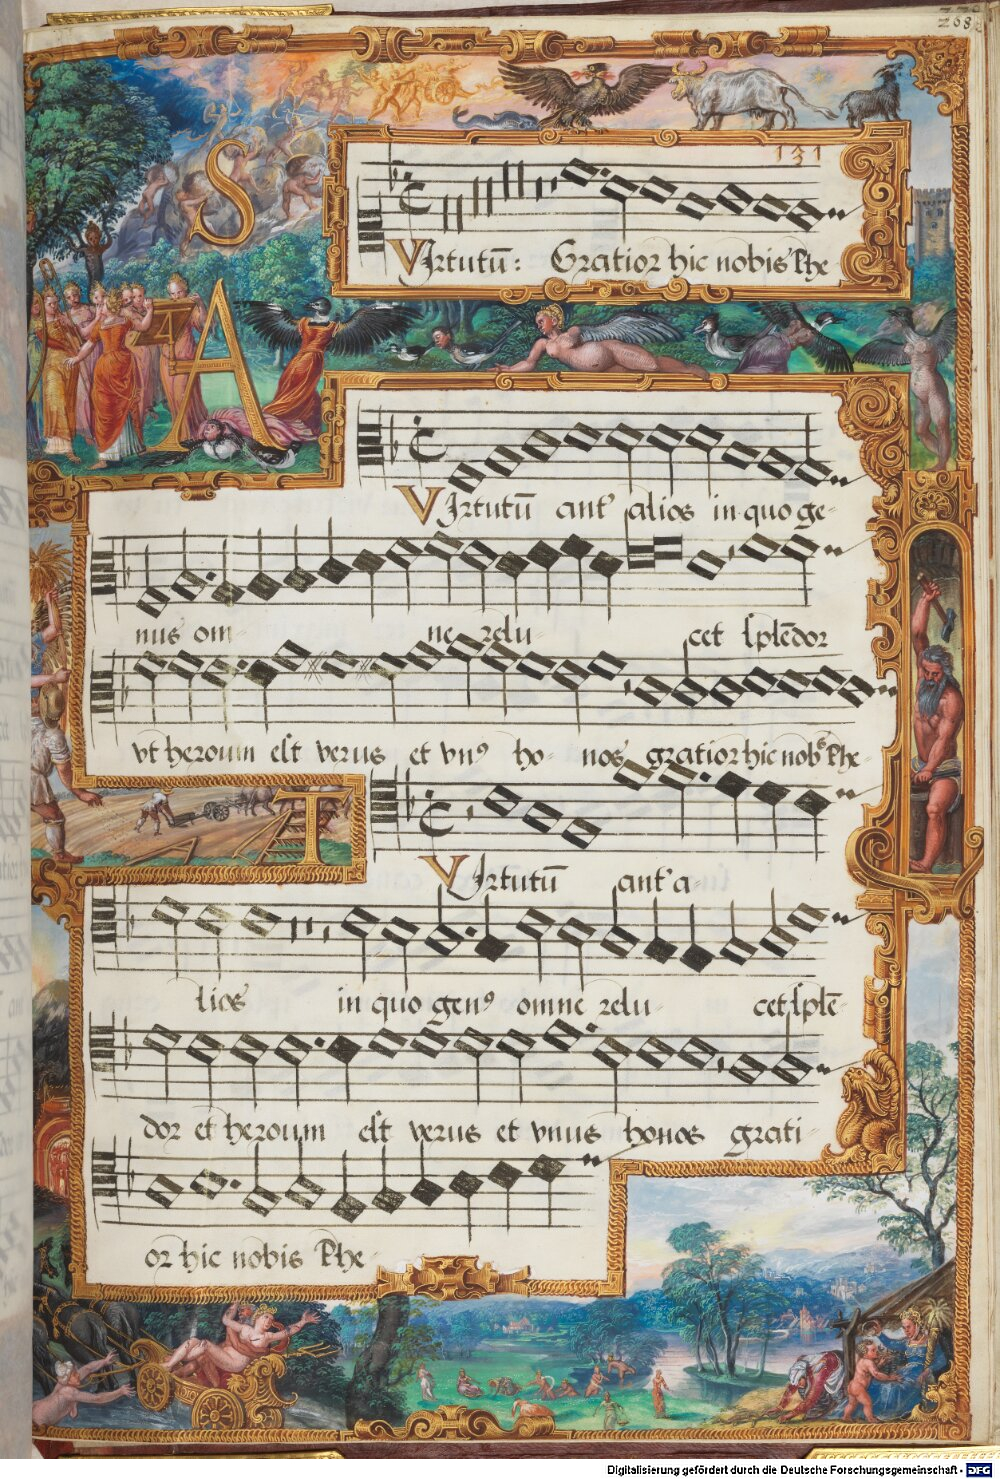 268
131
S
VIrtutū: Gratior hic nobis Rhe
A
VIrtutū ant' alios in quo ge-
nus om- ne relu- cet splēdor
vt heroum est verus et vn⁹ ho- nos gratior hic nob' Rhe-
T
VIrtutū ant' a-
lios in quo gen⁹ omne relu- cet splē-
dor et heroum est verus et vnus honos grati-
or hic nobis Rhe-
Digitalisierung gefördert durch die Deutsche Forschungsgemeinschaft - DFG